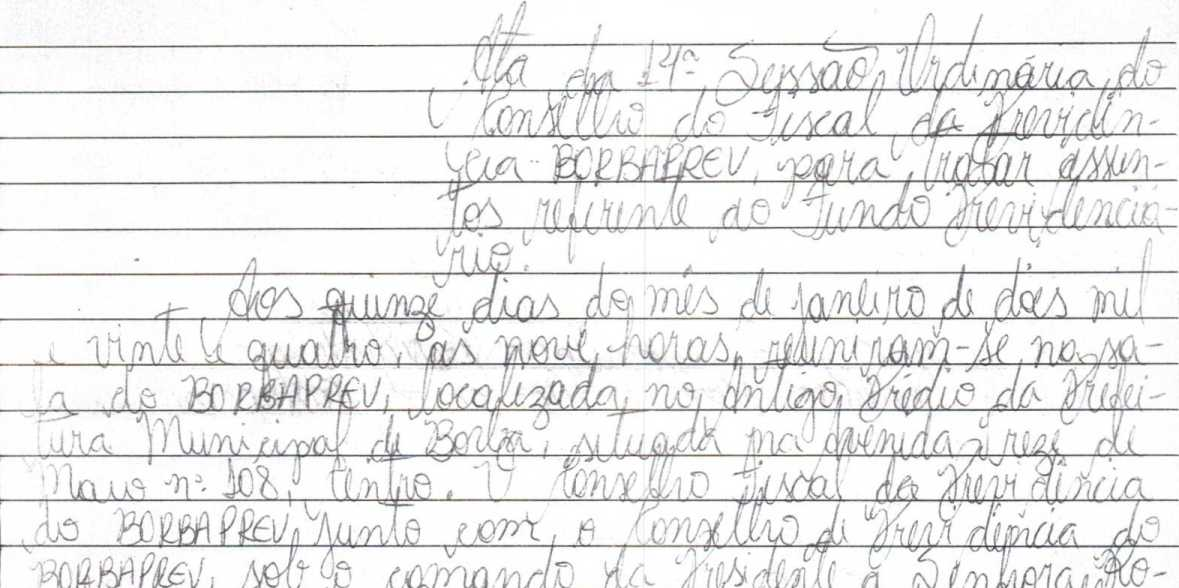 Ata da 14ª Sessão Ordinária do
Conselho do Fiscal da Previdên-
cia BORBAPREV, para tratar assun-
tos referente ao Fundo Previdenciá-
rio.
Aos quinze dias do mês de janeiro de dois mil
e vinte e quatro, às nove horas, reuniram-se na sa-
la do BORBAPREV, localizada no antigo Prédio da Prefei-
tura Municipal de Borba, situada na Avenida Treze de
Maio nº 108, Centro. O Conselho Fiscal da Previdência
do BORBAPREV, junto com o Conselho de Previdência do
BORBAPREV, sob o comando da Presidente a Senhora